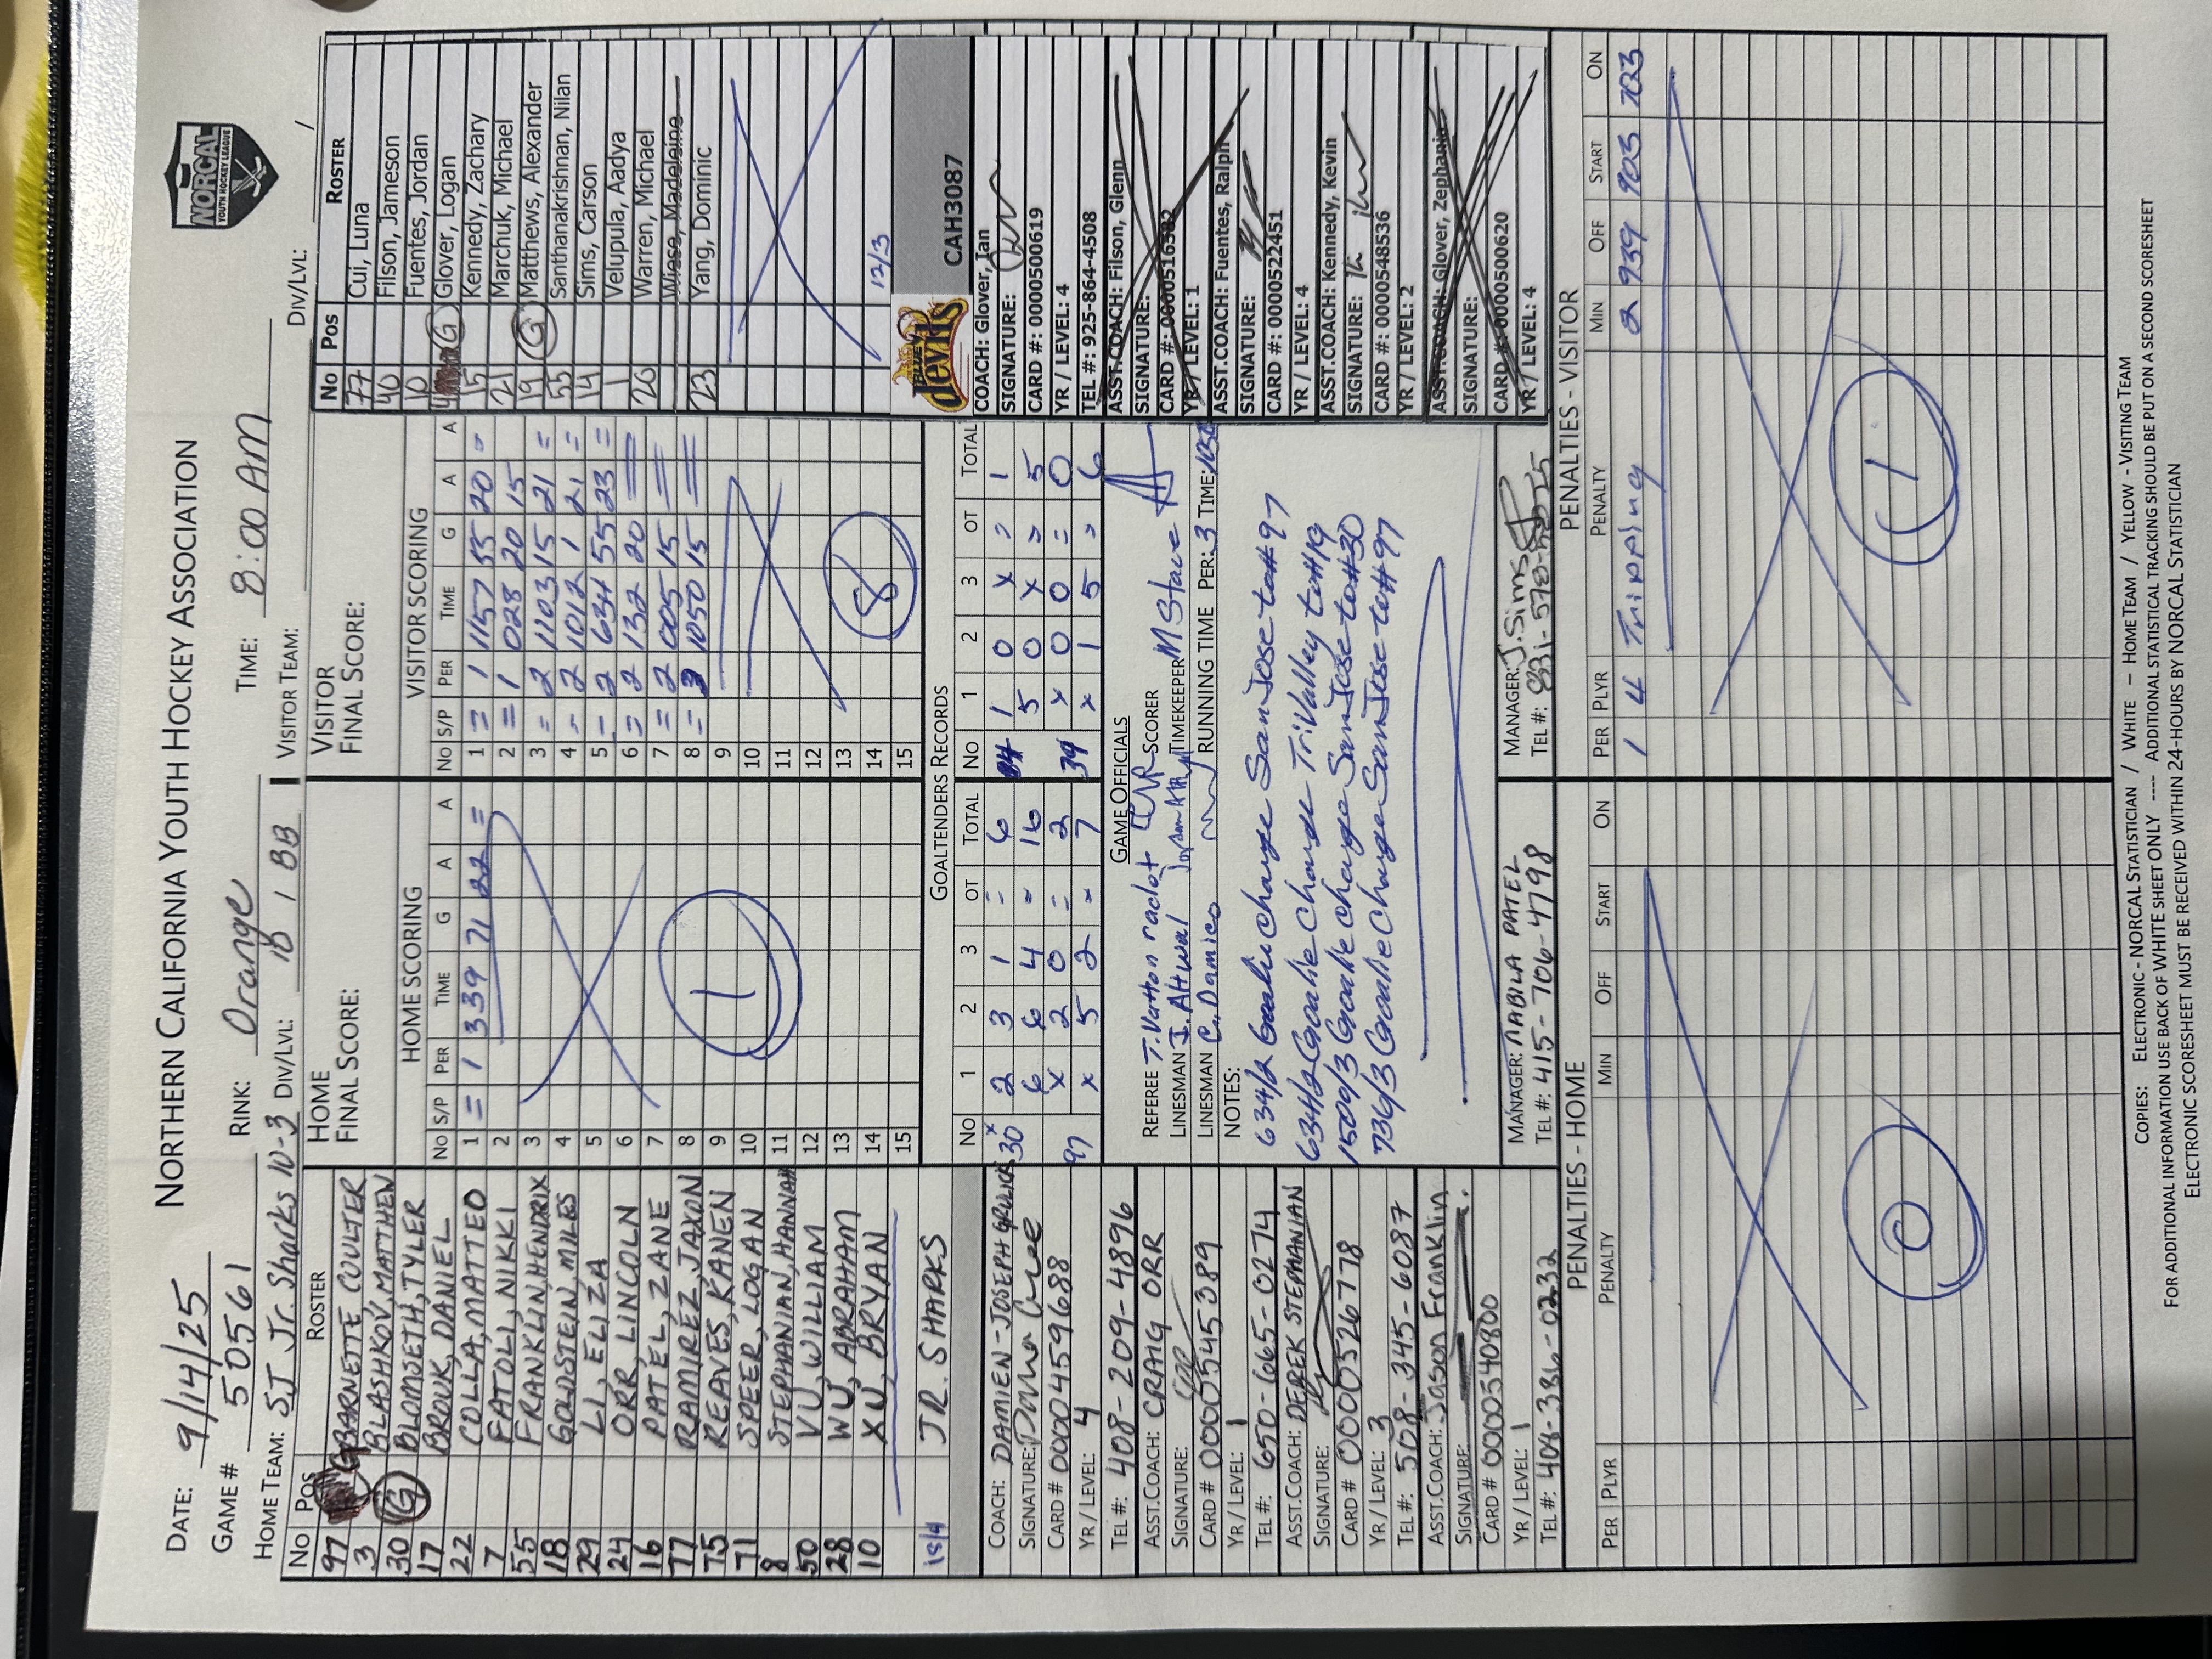 NORTHERN CALIFORNIA YOUTH HOCKEY ASSOCIATION
NORCAL
YOUTH HOCKEY LEAGUE
DATE: 9/14/25
GAME # 50561
RINK: Orange
TIME: 8:00 AM
HOME TEAM: SJ Jr. Sharks 10-3 DIV/LVL: 10 1 BB
VISITOR TEAM: DIV/LVL: /
No Pos ROSTER
97 G BARNETTE COULTER
3 BLASHKOV, MATTHEW
30 (G) BLOMSETH, TYLER
17 BROUK, DANIEL
22 COLLA, MATTEO
7 FATOLLI, NIKKI
55 FRANKLIN, HENDRIX
18 GOLDSTEIN, MILES
29 LI, ELIZA
24 ORR, LINCOLN
16 PATEL, ZANE
77 RAMIREZ, JAXON
75 REAVES, KANEN
71 SPEER, LOGAN
8 STEPHANIAN, HANNAH
50 VU, WILLIAM
28 WU, ABRAHAM
10 XU, BRYAN
15/4 JR. SHARKS
COACH: DAMIEN-JOSEPH
SIGNATURE:
CARD # 0000459688
YR / LEVEL: 4
TEL #: 408-209-4896
ASST.COACH: CRAIG ORR
SIGNATURE:
CARD # 0000545389
YR / LEVEL: 1
TEL #: 650-665-0274
ASST.COACH: DEREK STEPHANIAN
SIGNATURE:
CARD # 0000526778
YR / LEVEL: 3
TEL #: 508-345-6087
ASST.COACH: Jason Franklin
SIGNATURE:
CARD # 0000540800
YR / LEVEL: 1
TEL #: 408-386-0232
HOME
FINAL SCORE:
HOME SCORING
No S/P PER TIME G A A
1 = 1 339 71 22 =
2
3
4
5
6
7
8
9
10
11
12
13
14
15
1
VISITOR
FINAL SCORE:
VISITOR SCORING
No S/P PER TIME G A A
1 = 1 1157 55 20 =
2 = 1 028 20 15
3 = 2 1103 15 21 =
4 = 2 1012 1 21 =
5 = 2 634 55 23 =
6 = 2 132 20 = =
7 = 2 005 15 = =
8 = 3 1050 15 = =
9
10
11
12
13
14
15
8
GOALTENDERS RECORDS
No 1 2 3 OT TOTAL No 1 2 3 OT TOTAL
30 2 3 1 = 6 1 0 x = 1
6 6 4 = 16 5 0 x = 5
x 2 0 = 2 x 0 0 = 0
97 x 5 2 = 7 x 1 5 = 6
GAME OFFICIALS
REFEREE SCORER
LINESMAN J. Attwal TIMEKEEPER
LINESMAN C. Damico RUNNING TIME PER: 3 TIME:
NOTES:
634/2 Goalie Change San Jose to #97
634/2 Goalie Change Tri Valley to #19
1500/3 Goalie Change San Jose to #30
736/3 Goalie Change San Jose to #97
MANAGER: NABILA PATEL
TEL #: 415-706-4798
MANAGER: J. Sims
TEL #:
No Pos ROSTER
77 Cui, Luna
40 Filson, Jameson
10 Fuentes, Jordan
(G) Glover, Logan
15 Kennedy, Zachary
21 Marchuk, Michael
19 (G) Matthews, Alexander
55 Santhanakrishnan, Nilan
14 Sims, Carson
1 Velupula, Aadya
20 Warren, Michael
Wiese, Madeleine
23 Yang, Dominic
12/3
BLUE devils
CAH3087
COACH: Glover, Ian
SIGNATURE:
CARD #: 0000500619
YR / LEVEL: 4
TEL #: 925-864-4508
ASST.COACH: Filson, Glenn
SIGNATURE:
CARD #: 0000516382
YR / LEVEL: 1
ASST.COACH: Fuentes, Ralph
SIGNATURE:
CARD #: 0000522451
YR / LEVEL: 4
ASST.COACH: Kennedy, Kevin
SIGNATURE:
CARD #: 0000548536
YR / LEVEL: 2
ASST.COACH: Glover, Zephanie
SIGNATURE:
CARD #: 0000500620
YR / LEVEL: 4
PENALTIES - HOME
PER PLYR PENALTY MIN OFF START ON
0
PENALTIES - VISITOR
PER PLYR PENALTY MIN OFF START ON
1 4 Tripping 2 939 903 703
1
COPIES: ELECTRONIC - NORCAL STATISTICIAN / WHITE – HOME TEAM / YELLOW - VISITING TEAM
FOR ADDITIONAL INFORMATION USE BACK OF WHITE SHEET ONLY ---- ADDITIONAL STATISTICAL TRACKING SHOULD BE PUT ON A SECOND SCORESHEET
ELECTRONIC SCORESHEET MUST BE RECEIVED WITHIN 24-HOURS BY NORCAL STATISTICIAN